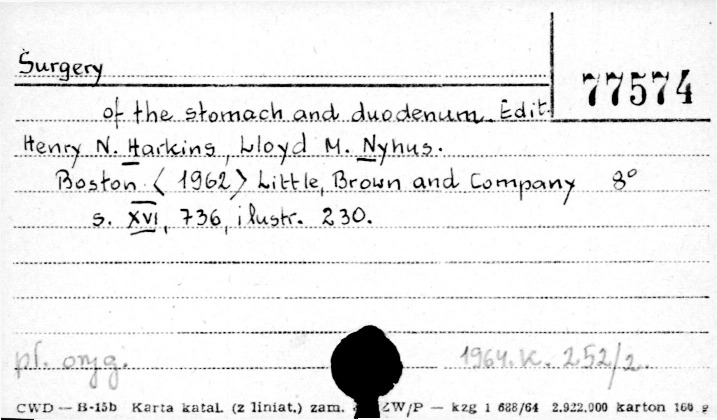 Surgery
77574
of the stomach and duodenum. Edit.
Henry N. Harkins, Lloyd M. Nyhus.
Boston &lt;1962&gt; Little, Brown and Company 8°
s. XVI, 736, ilustr. 230.
pł. oryg. 1964.K. 252/2.
CWD — B-15b Karta katal. (z liniat.) zam. ZW/P — kzg 1 688/64 2.922.000 karton 160 g